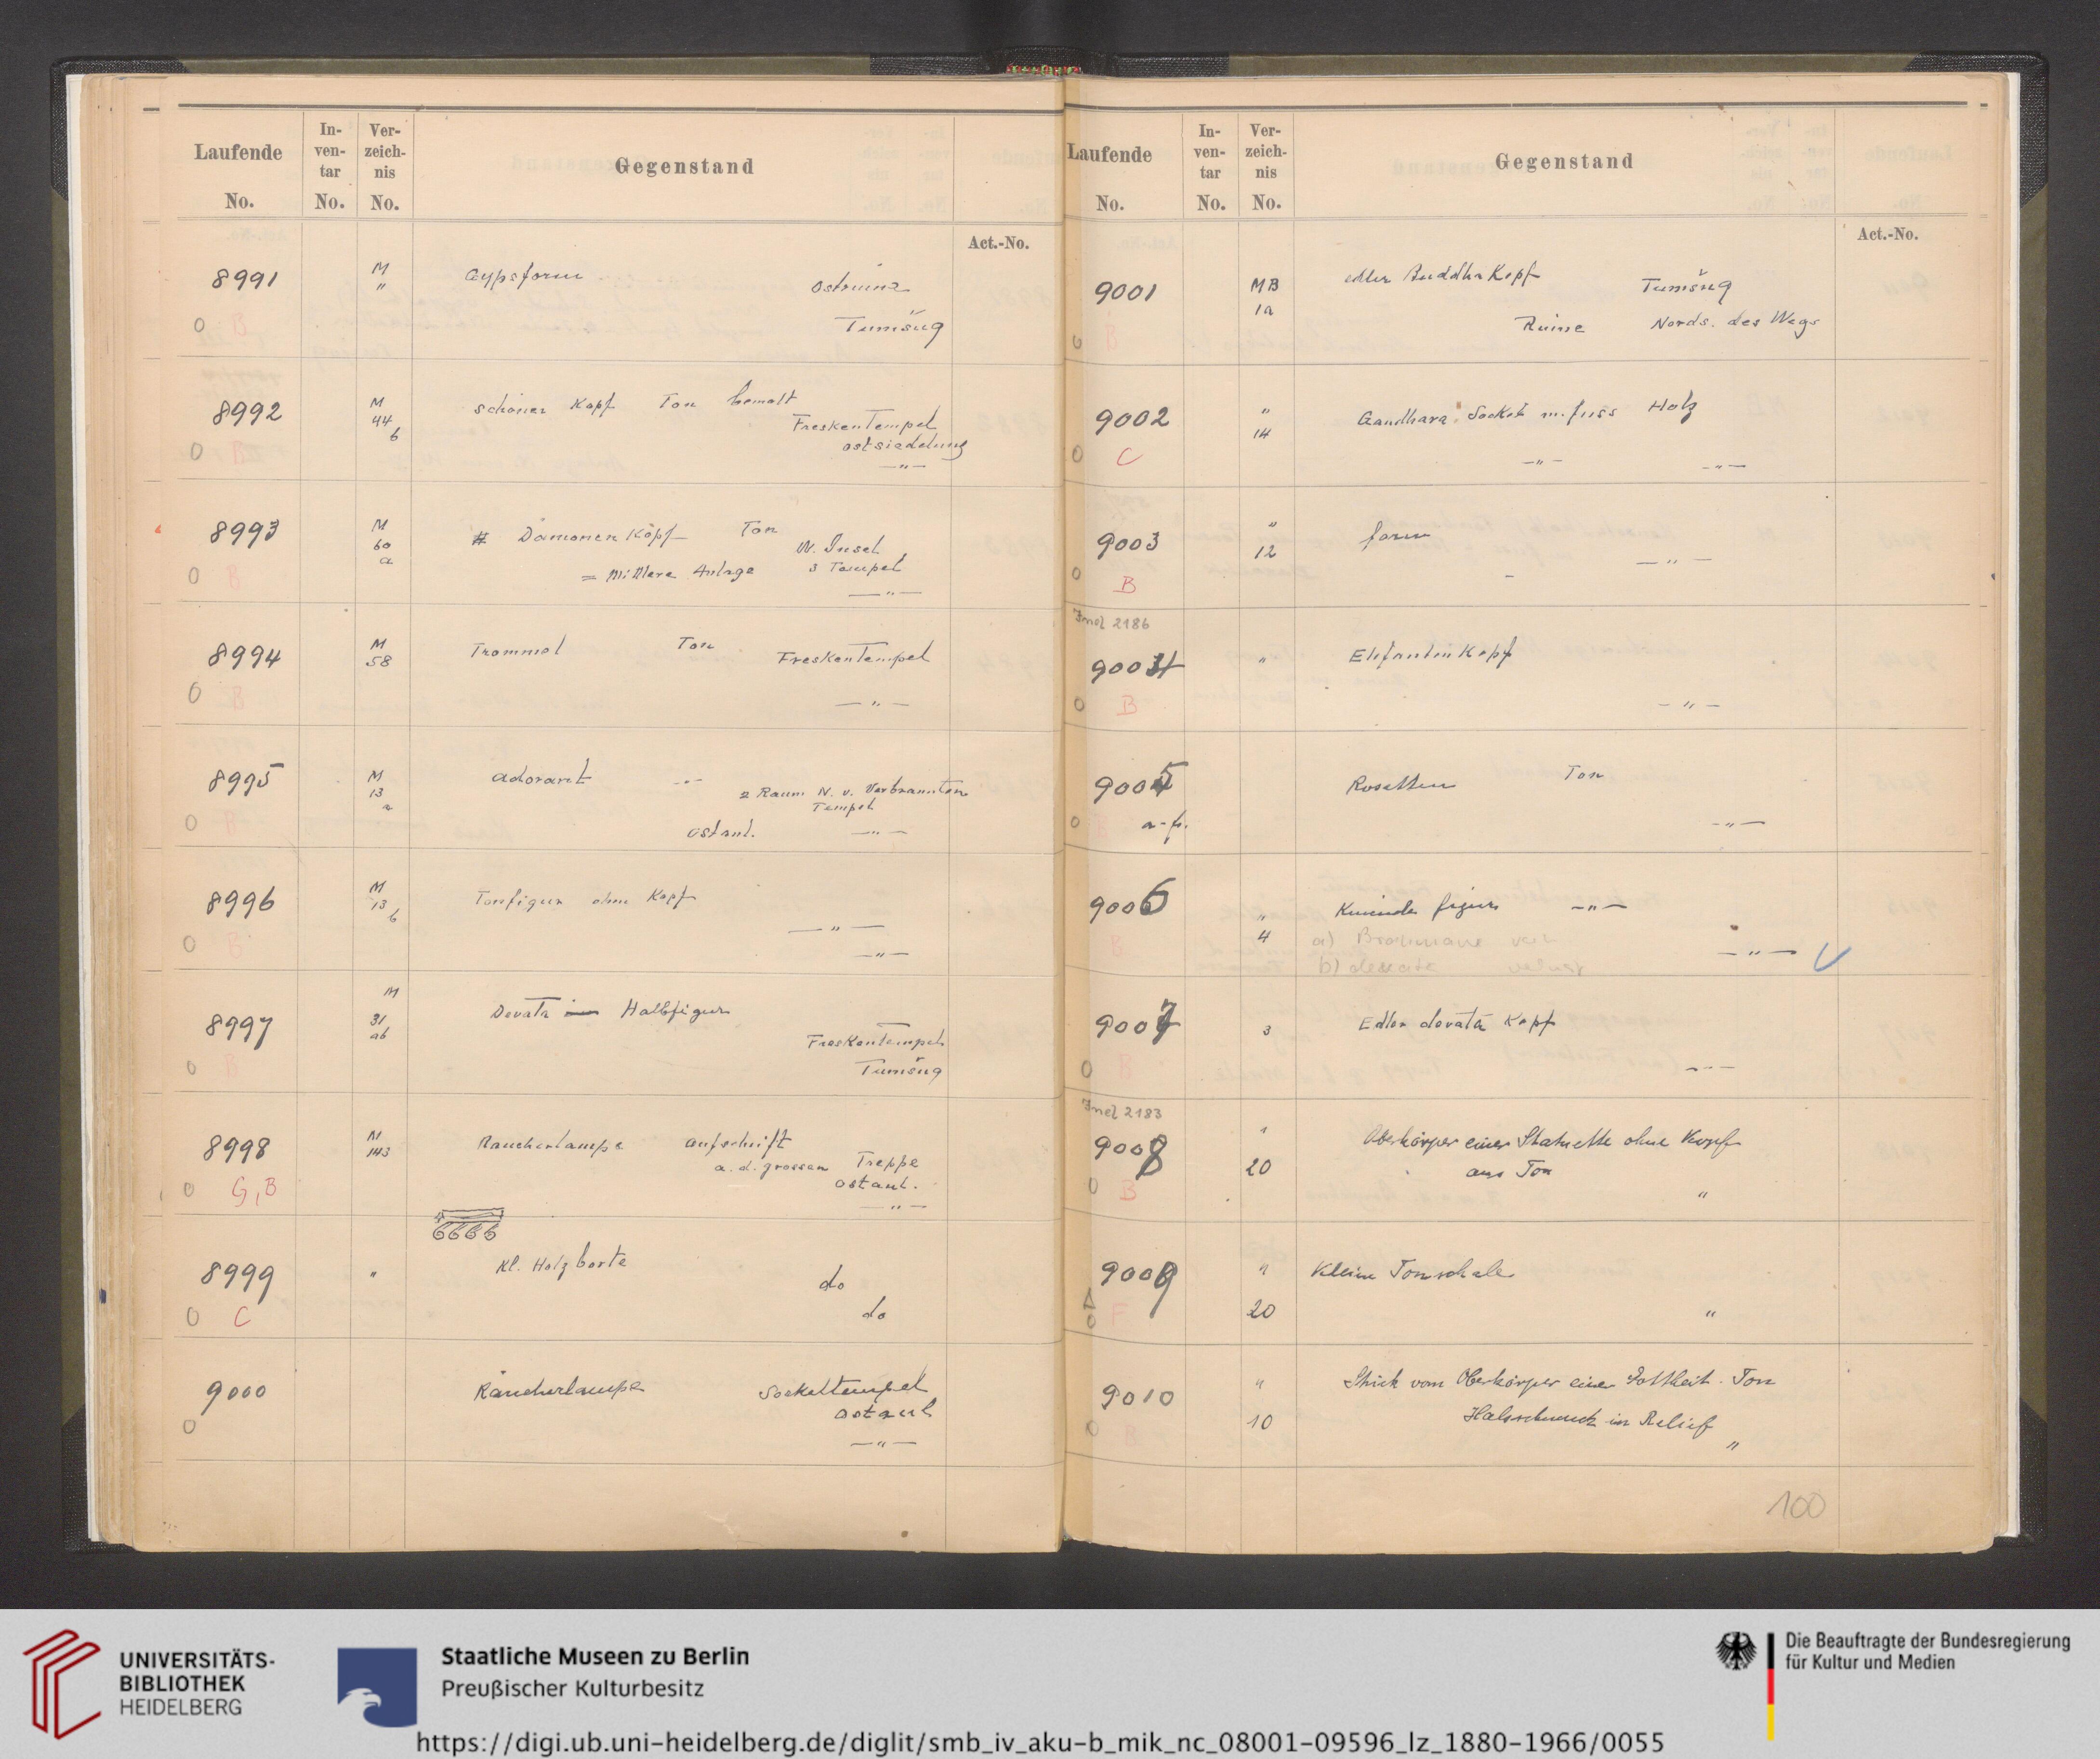 Laufende No.
In-ven-tar No.
Ver-zeich-nis No.
Gegenstand
Act.-No.
8991 M " Gypsform Ostruine
O B Tumšuq
8992 M 44 b schöner Kopf Ton bemalt
Freskentempel
ostsiedelung
O B —"—
8993 M 60 a # Dämonen Kopf Ton
W. Insel
= Mittlere Anlage 3 Tempel
O B —"—
8994 M 58 Trommel Ton Freskentempel
O B —"—
8995 M 13 a adorant —"—
2 Raum N. v. Verbrannten
Tempel
O B ostanl. —"—
8996 M 13 b Tonfigur ohne Kopf
—"—
O B —"—
8997 M 31 ab Devata Halbfigur
Freskentempel
O B Tumšuq
8998 M 143 Raucherlampe aufschrift
a. d. grossen Treppe
O G, B ostanl.
—"—
6666
8999 " Kl. Holzborte do
O C do
9000 Räucherlampe Sockeltempel
ostanl
O —"—
Laufende No.
In-ven-tar No.
Ver-zeich-nis No.
Gegenstand
Act.-No.
9001 MB 1a edler Buddha Kopf Tumšuq
O B Ruine Nords. des Wegs
9002 " 14 Gandhara Sockel m. fuss Holz
O C —"— —"—
9003 " 12 form —"—
O B
2186
9004 " Elefanten Kopf
O B —"—
9005 Rosetten Ton
O a-f. —"—
9006 " 4 Kniende figur —"—
B a) Brahmane
b) —"—
9007 3 Edler devatā Kopf
O B —"—
2183
9008 " 20 Oberkörper einer Statuette ohne Kopf
aus Ton
O B "
9009 " 20 Kleine Tonschale
O F "
9010 " 10 Stück vom Oberkörper einer Gottheit. Ton
Halsschmuck in Relief
O B "
100
UNIVERSITÄTS-
BIBLIOTHEK
HEIDELBERG
Staatliche Museen zu Berlin
Preußischer Kulturbesitz
Die Beauftragte der Bundesregierung
für Kultur und Medien
https://digi.ub.uni-heidelberg.de/diglit/smb_iv_aku-b_mik_nc_08001-09596_lz_1880-1966/0055